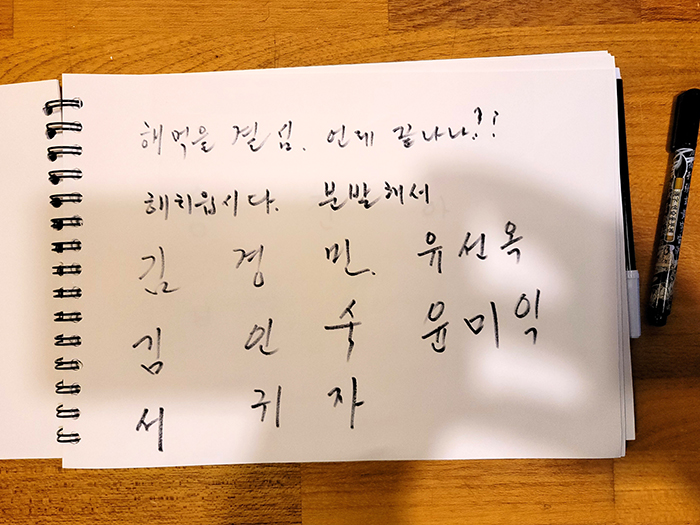 해먹을 결심. 언제 끝나나?!
해치웁시다. 분발해서
김 경 민. 유선옥
김 인 숙 윤미익
서 귀 자